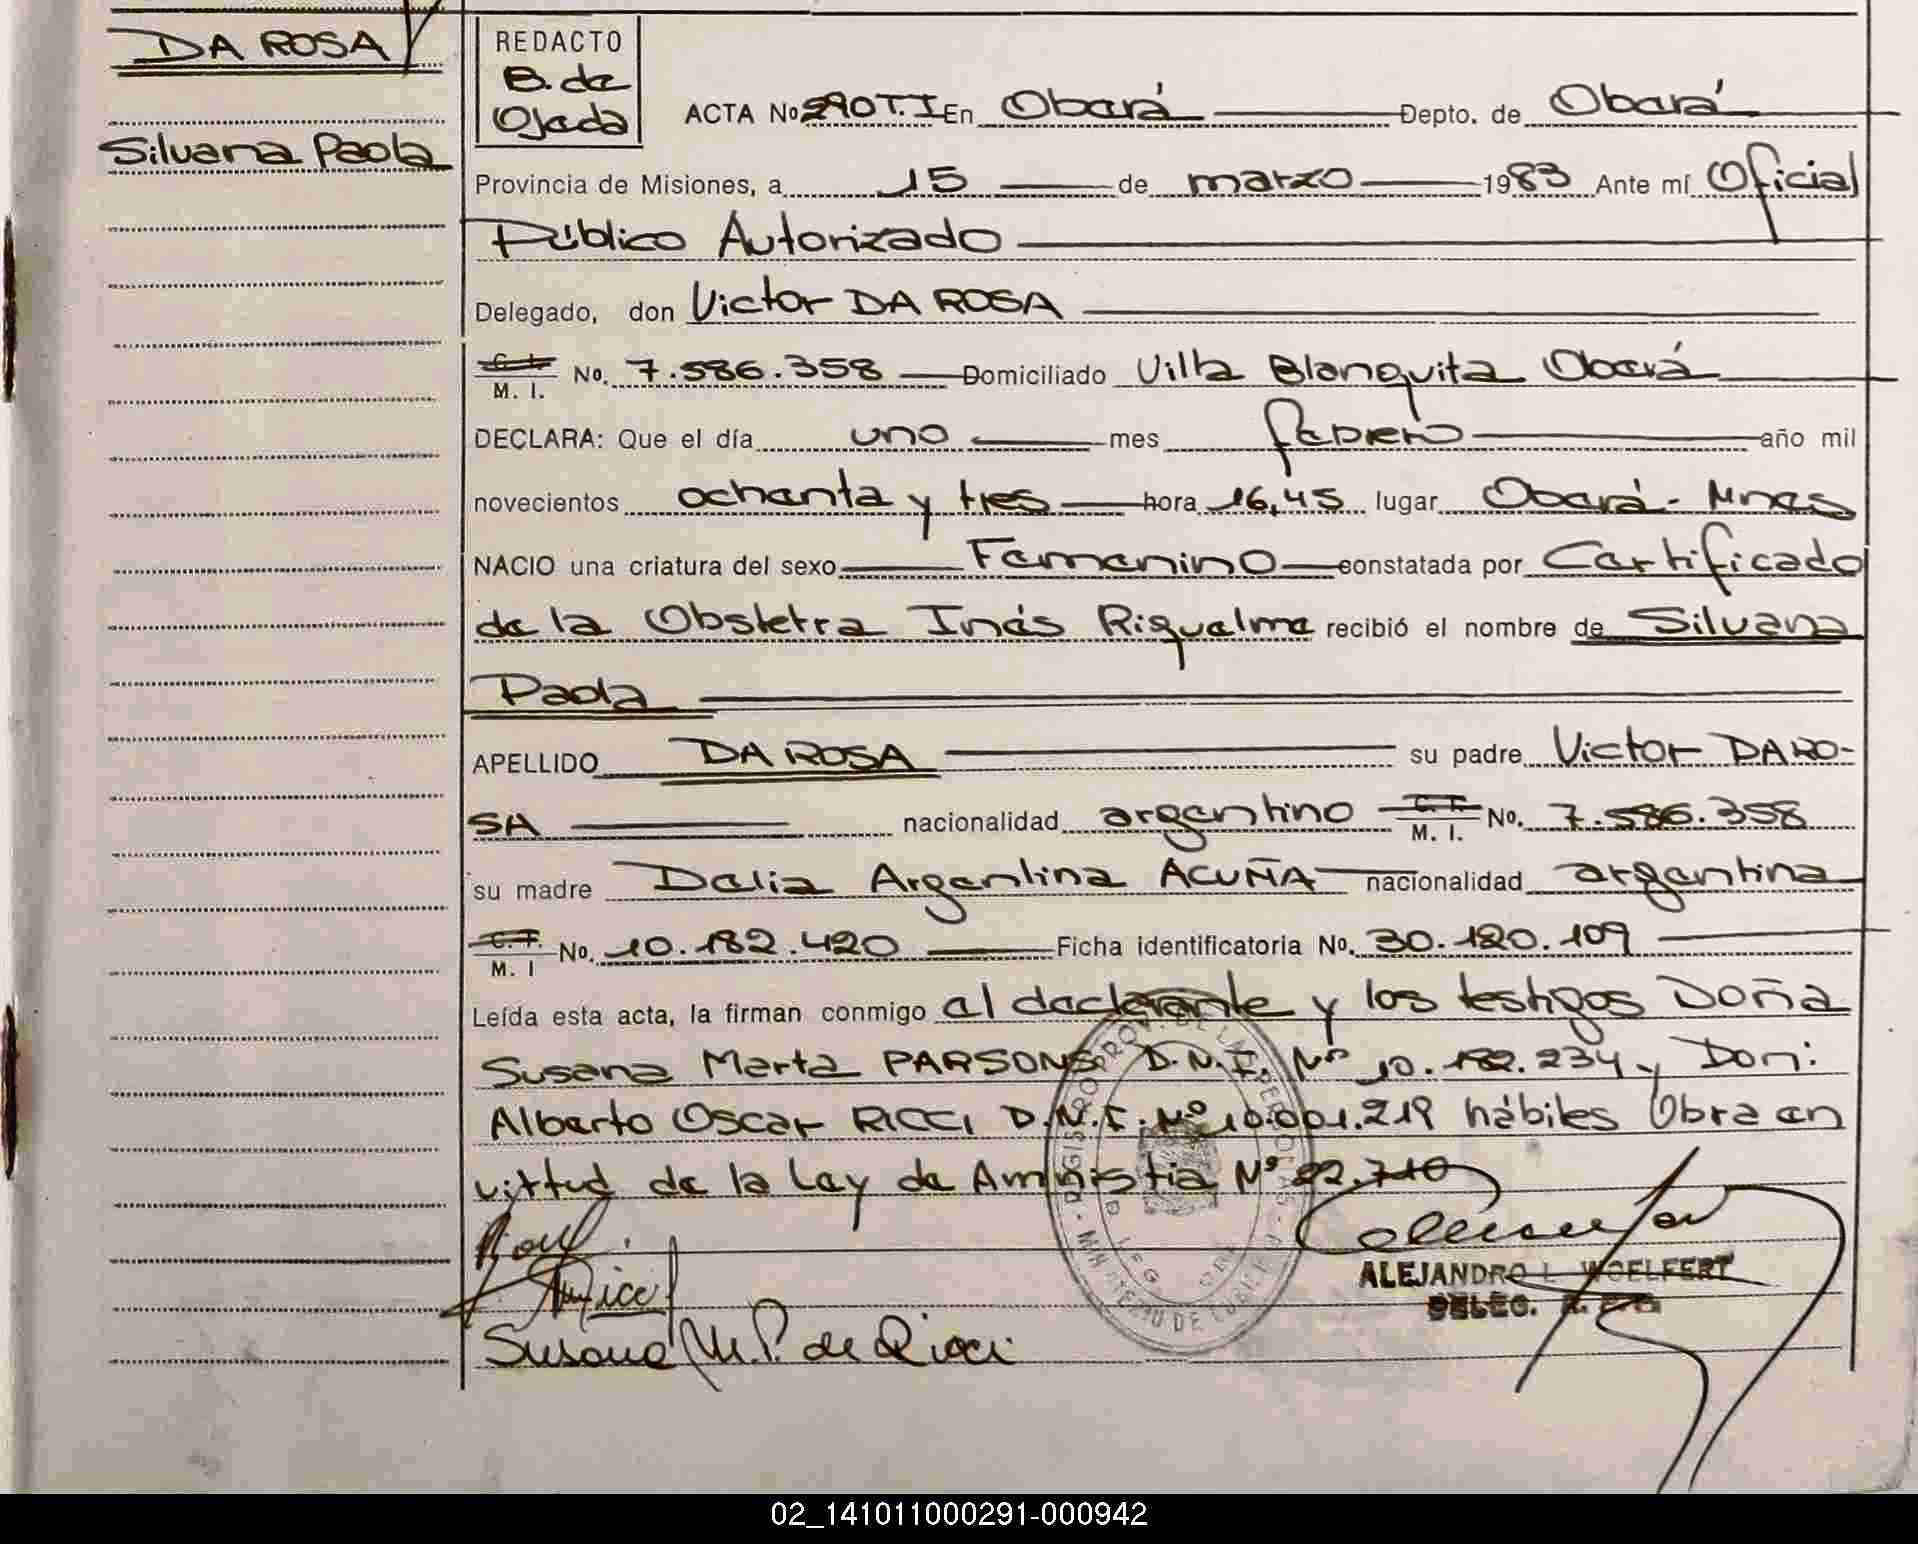 DA ROSA
Silvana Paola
REDACTO
B. de
Ojeda
ACTA No 290 T.I En Oberá Depto. de Oberá
Provincia de Misiones, a 15 de marzo 1983 Ante mí Oficial
Público Autorizado
Delegado, don Victor DA ROSA
C. I. M. I. No. 7.586.358 Domiciliado Villa Blanquita Oberá
DECLARA: Que el día uno mes febrero año mil
novecientos ochenta y tres hora 16,45 lugar Oberá - Mnes
NACIO una criatura del sexo Femenino constatada por Certificado
de la Obstetra Inés Riquelme recibió el nombre de Silvana
Paola
APELLIDO DA ROSA su padre Victor DA RO-
SA nacionalidad argentino C. I. M. I. No. 7.586.358
su madre Delia Argentina ACUÑA nacionalidad argentina
C. I. M. I No. 10.182.420 Ficha identificatoria No. 30.120.109
Leída esta acta, la firman conmigo el declarante y los testigos Doña
Susana Marta PARSONS D.N.I. Nº 10.182.234 y Don:
Alberto Oscar RICCI D.N.I. Nº 10.001.219 hábiles Obra en
virtud de la Ley de Amnistia Nº 22.710
Susana M. P. de Ricci
ALEJANDRO L. WOELFERT
DELEG.
REGISTRO PROV. DE LAS PERSONAS
02_141011000291-000942